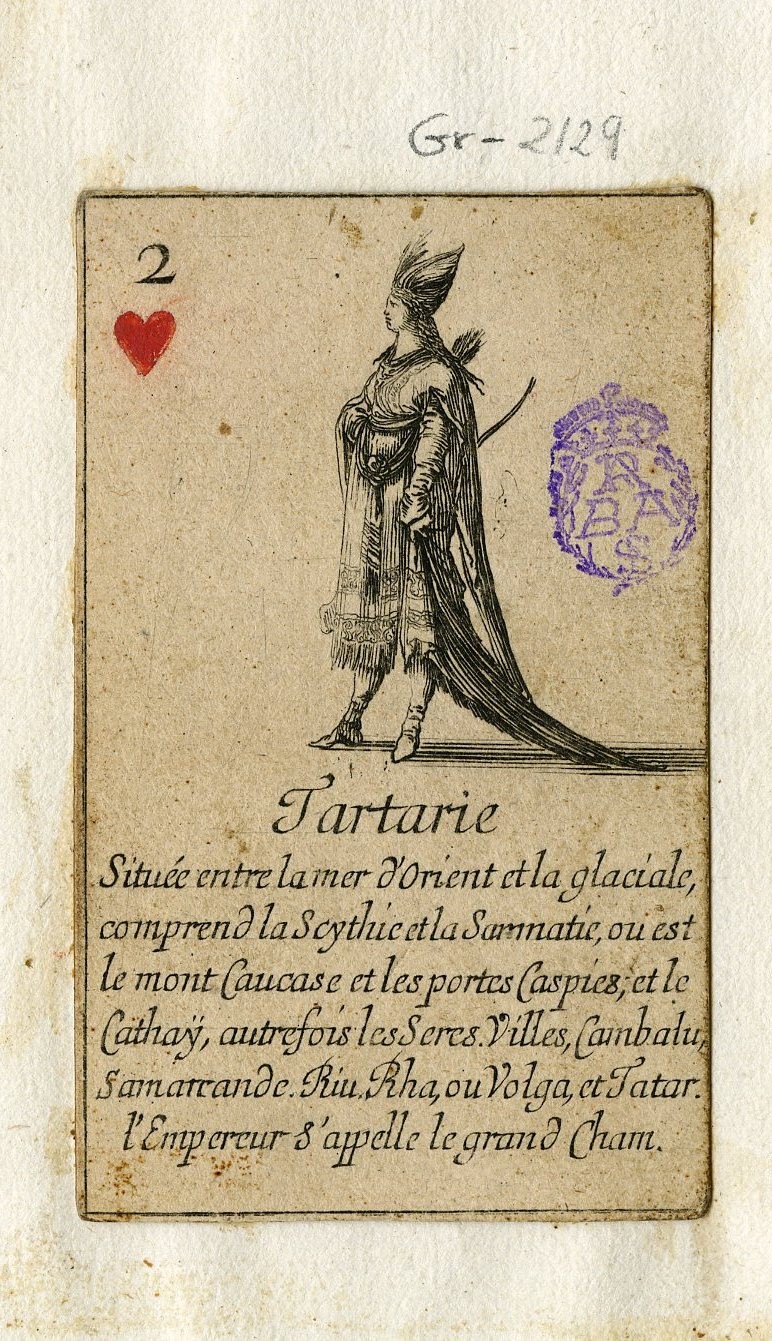 Gr-2129
2
R
B A
S
Tartarie
Située entre la mer d'Orient et la glaciale,
comprend la Scythie et la Sarmatie, ou est
le mont Caucase et les portes Caspies; et le
Cathaÿ, autrefois les Seres. Villes, Cambalu,
Samarcande. Riu. Rha, ou Volga, et Tatar.
l'Empereur s'appelle le grand Cham.